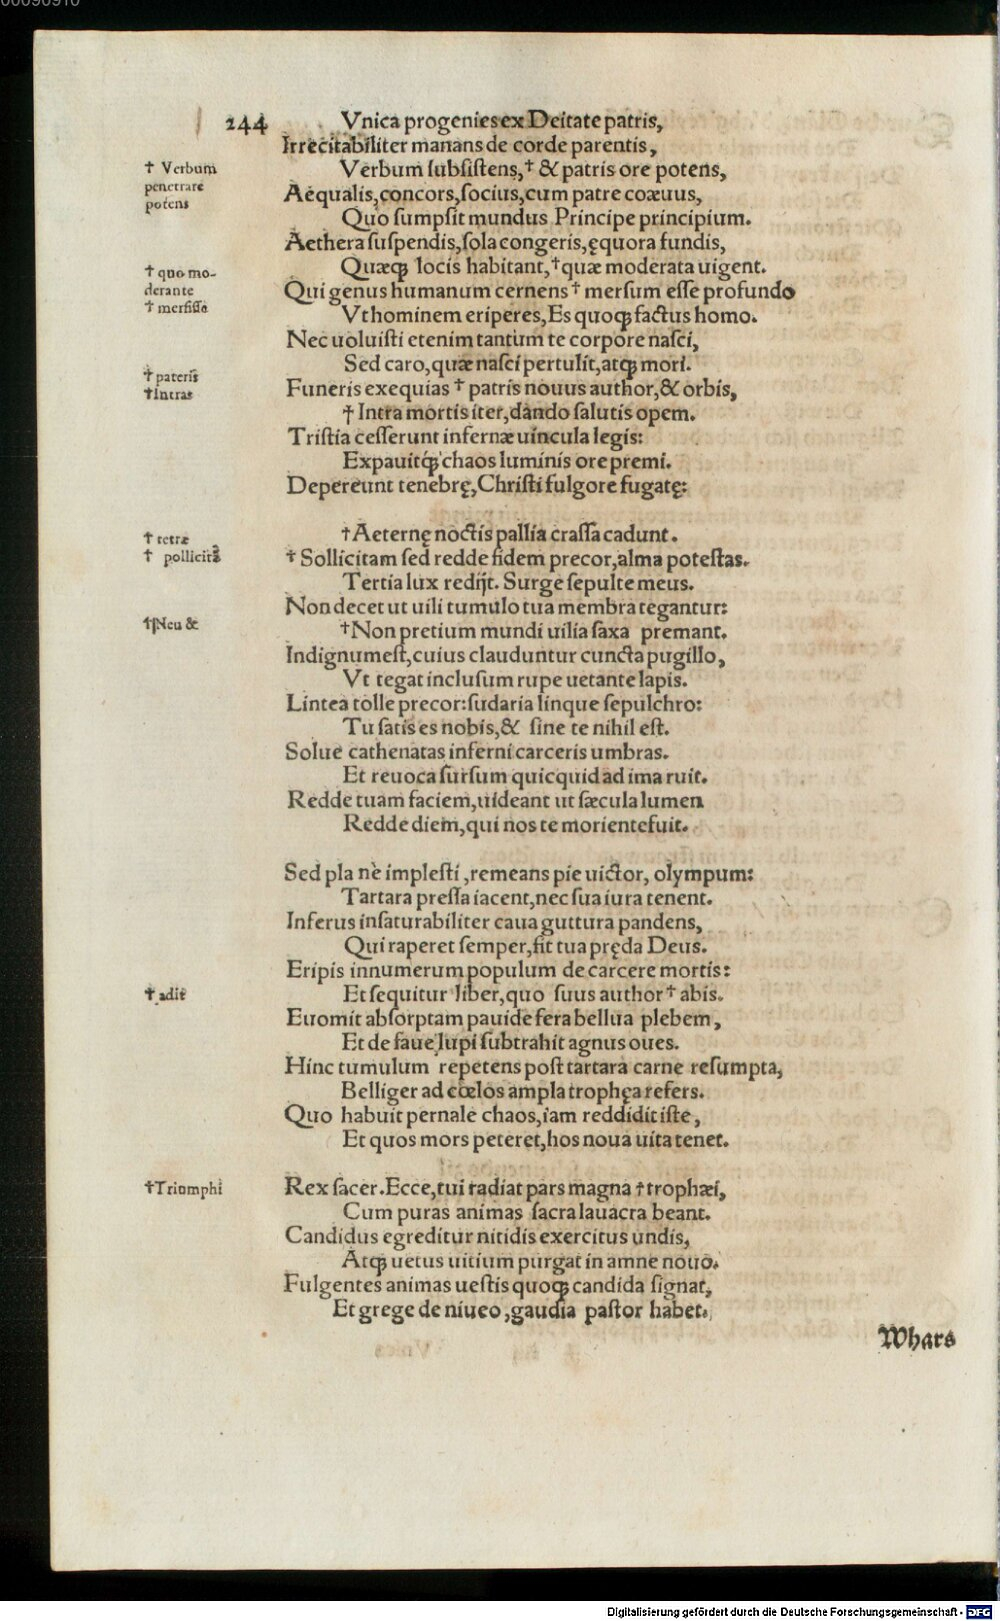 244 Vnica progenies ex Deitate patris,
Irrecitabiliter manans de corde parentis,
† Verbum
penetrare
potens
Verbum subsistens,† & patris ore potens,
Aequalis,concors,socius,cum patre coæuus,
Quo sumpsit mundus Principe principium.
Aethera suspendis,sola congeris,ęquora fundis,
Quæq; locis habitant,†quæ moderata uigent.
† quo mo-
derante
† mersisse
Qui genus humanum cernens † mersum esse profundo
Vt hominem eriperes,Es quoq; factus homo.
Nec uoluisti etenim tantum te corpore nasci,
Sed caro,quæ nasci pertulit,atq; mori.
† pateris
†Intras
Funeris exequias † patris nouus author,& orbis,
† Intra mortis iter,dando salutis opem.
Tristia cesserunt infernæ uincula legis:
Expauitq; chaos luminis ore premi.
Depereunt tenebrę,Christi fulgore fugatę:
† tetræ
† pollicitã
†Aeternę noctis pallia crassa cadunt.
† Sollicitam sed redde fidem precor,alma potestas.
Tertia lux redijt. Surge sepulte meus.
Non decet ut uili tumulo tua membra tegantur:
†Neu &
†Non pretium mundi uilia saxa premant.
Indignumest,cuius clauduntur cuncta pugillo,
Vt tegat inclusum rupe uetante lapis.
Lintea tolle precor:sudaria linque sepulchro:
Tu satis es nobis,& sine te nihil est.
Solue cathenatas inferni carceris umbras.
Et reuoca sursum quicquid ad ima ruit.
Redde tuam faciem,uideant ut sæcula lumen
Redde diem,qui nos te moriente fuit.
Sed pla nè implesti ,remeans pie uictor, olympum:
Tartara pressa iacent,nec sua iura tenent.
Inferus insaturabiliter caua guttura pandens,
Qui raperet semper,fit tua pręda Deus.
Eripis innumerum populum de carcere mortis:
† adit
Et sequitur liber,quo suus author † abis.
Euomit absorptam pauide fera bellua plebem,
Et de faue lupi subtrahit agnus oues.
Hinc tumulum repetens post tartara carne resumpta,
Belliger ad cœlos ampla trophęa refers.
Quo habuit pernale chaos,iam reddidit iste,
Et quos mors peteret,hos noua uita tenet.
†Triumphi
Rex sacer.Ecce,tui radiat pars magna †trophæi,
Cum puras animas sacra lauacra beant.
Candidus egreditur nitidis exercitus undis,
Atq; uetus uitium purgat in amne nouo.
Fulgentes animas uestis quoq; candida signat,
Et grege de niueo,gaudia pastor habet.
Whars
Digitalisierung gefördert durch die Deutsche Forschungsgemeinschaft - DFG